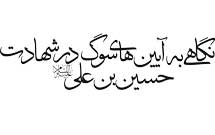 نگاهی به آیین های سوگ در شهادت
حسین بن علی